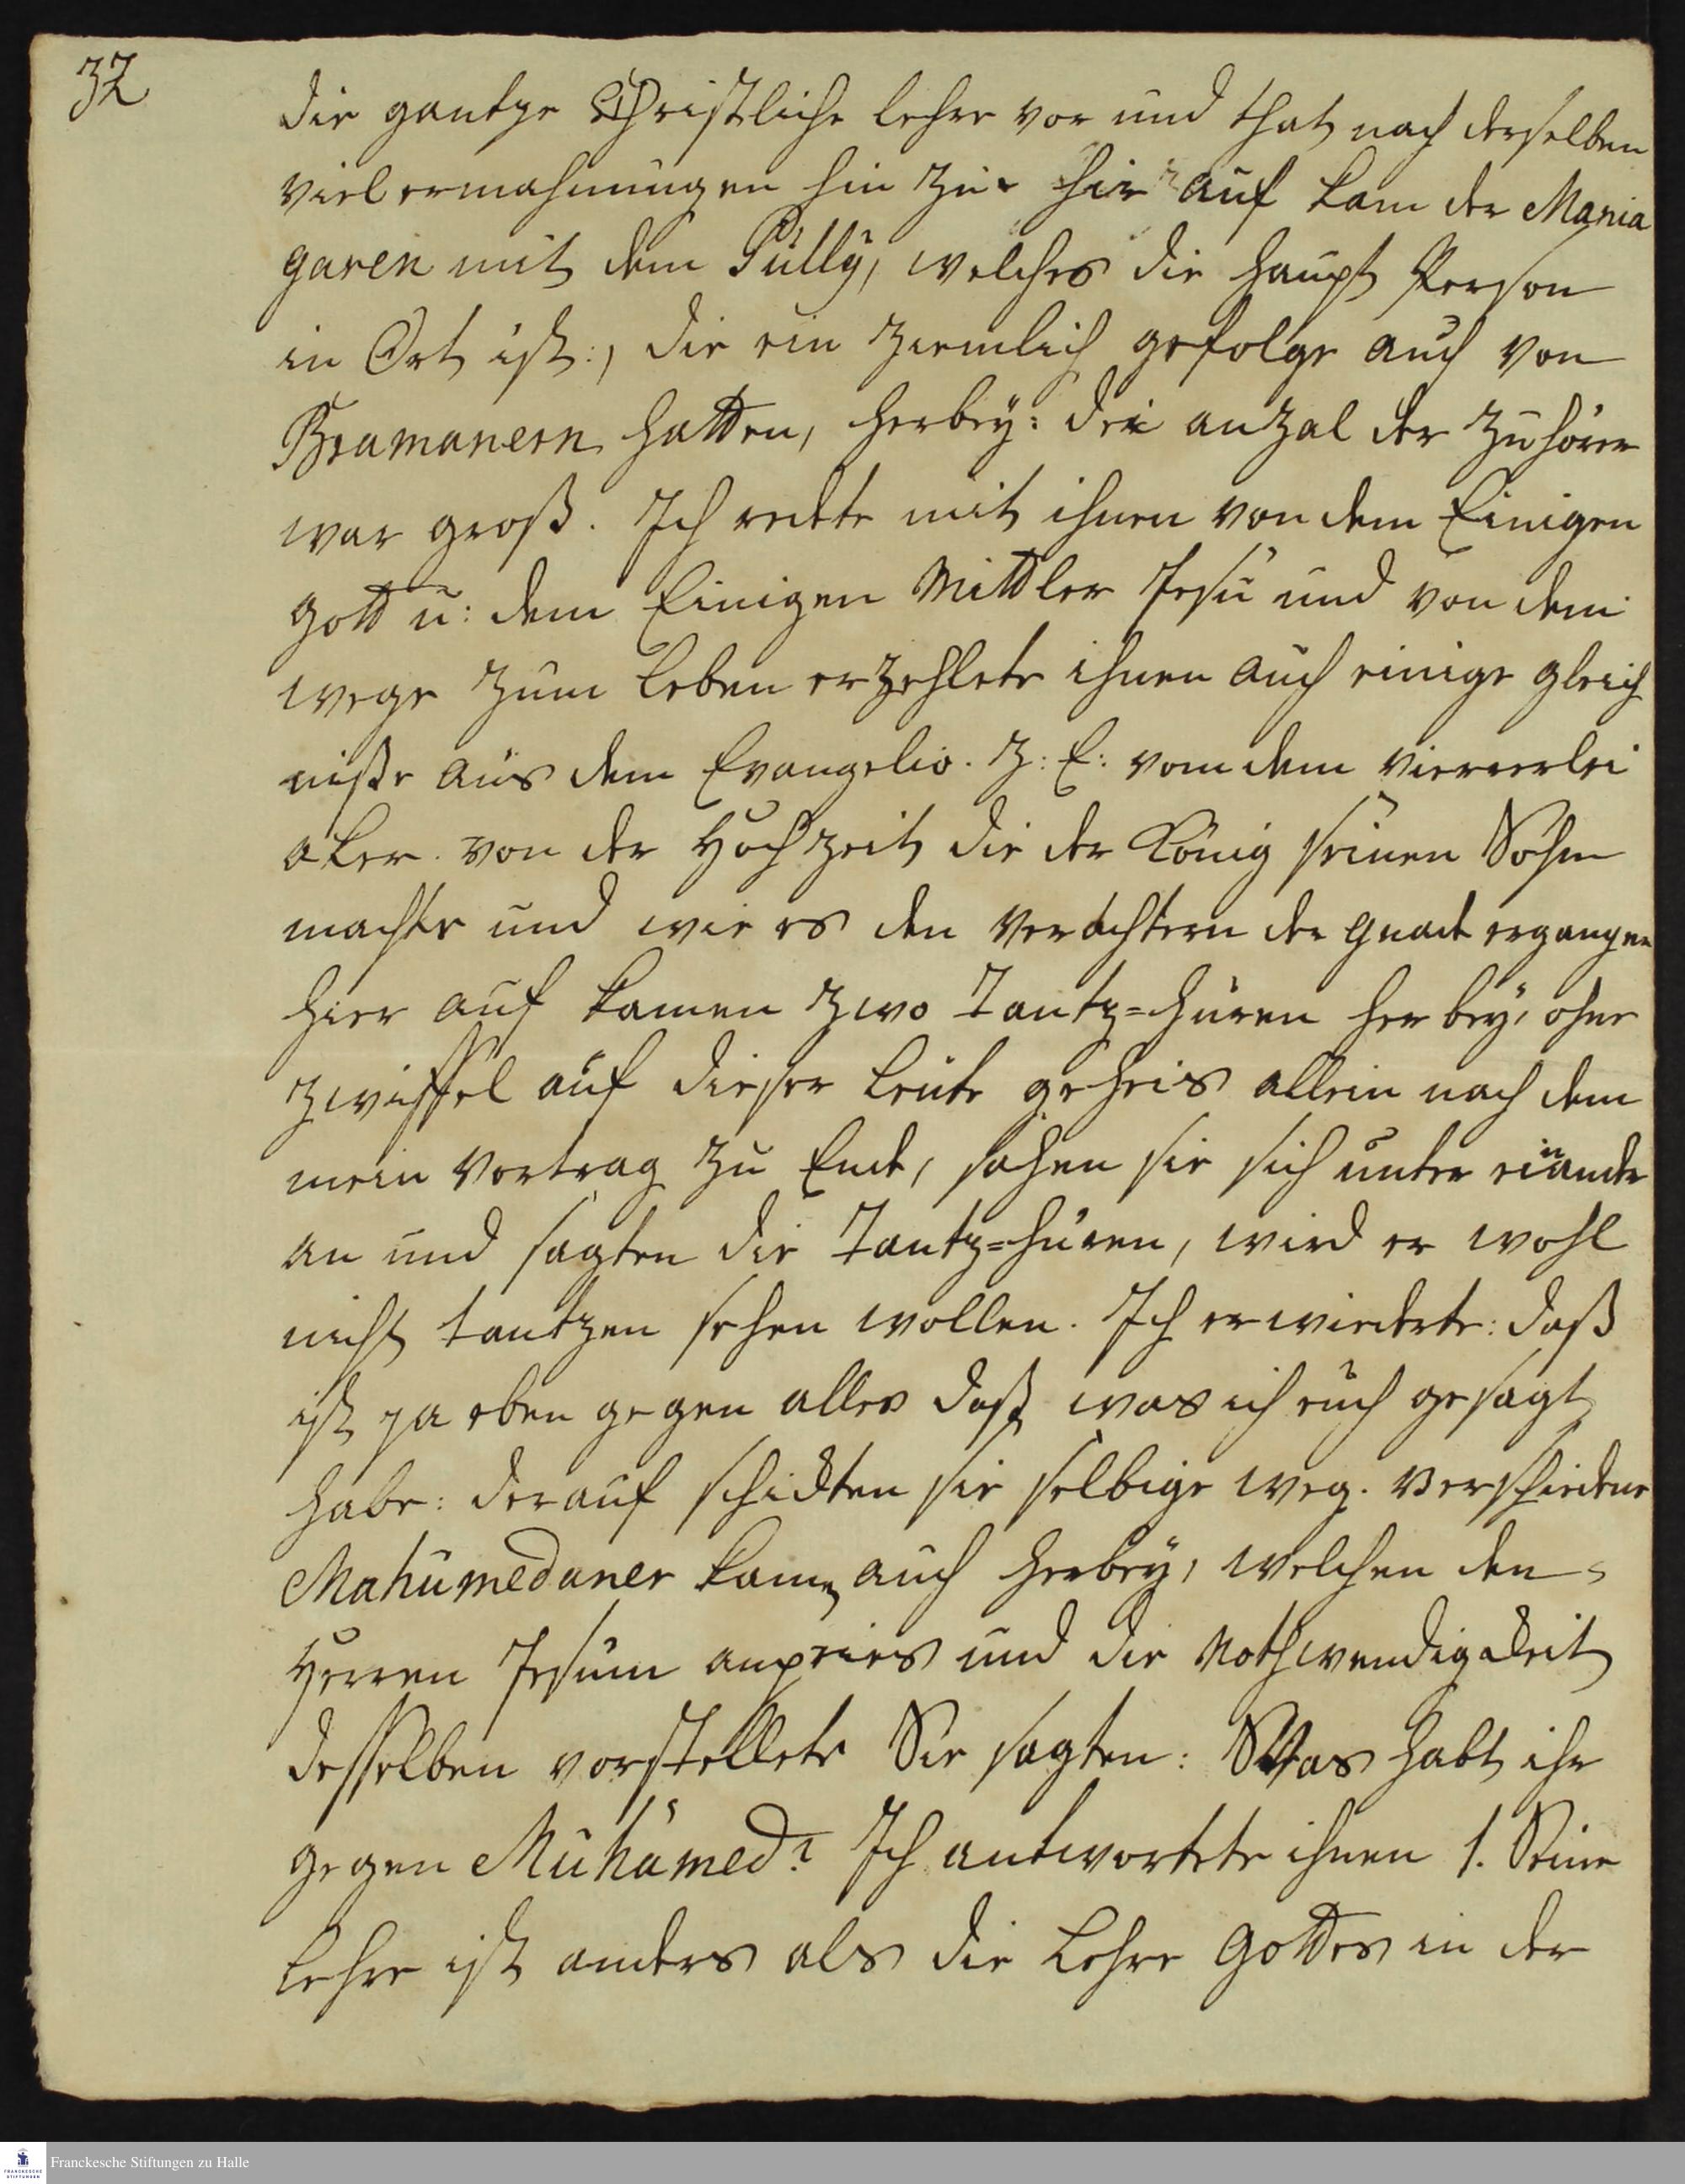 32
die gantze Christliche lehre vor und that nach derselben
viel ermahnungen hin zu. hir auf kam der Mania
garen mit dem Pülly, welches die haupt Person
in Ort ist:, die ein ziemlich gefolge auch von
Bramanern hatten, herbey: die anzal der zuhörer
war groß. Ich redte mit ihnen von dem Einigen
Gott u: dem Einigen Mittler Jesu und von dem
wege zum leben erzehlete ihnen auch einige gleich
niße aus dem Evangelio. Z: E: vom dem viererlei
aker. von der Hochzeit die der König seinen Sohn
machte und wie es den verächtern der gnade ergangen
hier auf kamen zwo Tantz=huren her bey, ohne
zweiffel auf dieser leute geheis allein nach dem
mein vortrag zu Ende, sahen sie sich unter einander
an und sagten die Tantz=huren, wird er wohl
nicht tantzen sehen wollen. Ich erwiederte: daß
ist ja eben gegen alles daß was ich euch gesagt
habe: derauf schickten sie selbige weg. verschiedene
Mahumedaner kamen auch herbey, welchen den
Herren Jesum anpries und die Nothwendigkeit
desselben vorstellete Sie sagten: Was habt ihr
gegen Muhamed? Ich antwortete ihnen 1. Seine
Lehre ist anders als die Lehre Gottes in der
Franckesche Stiftungen zu Halle